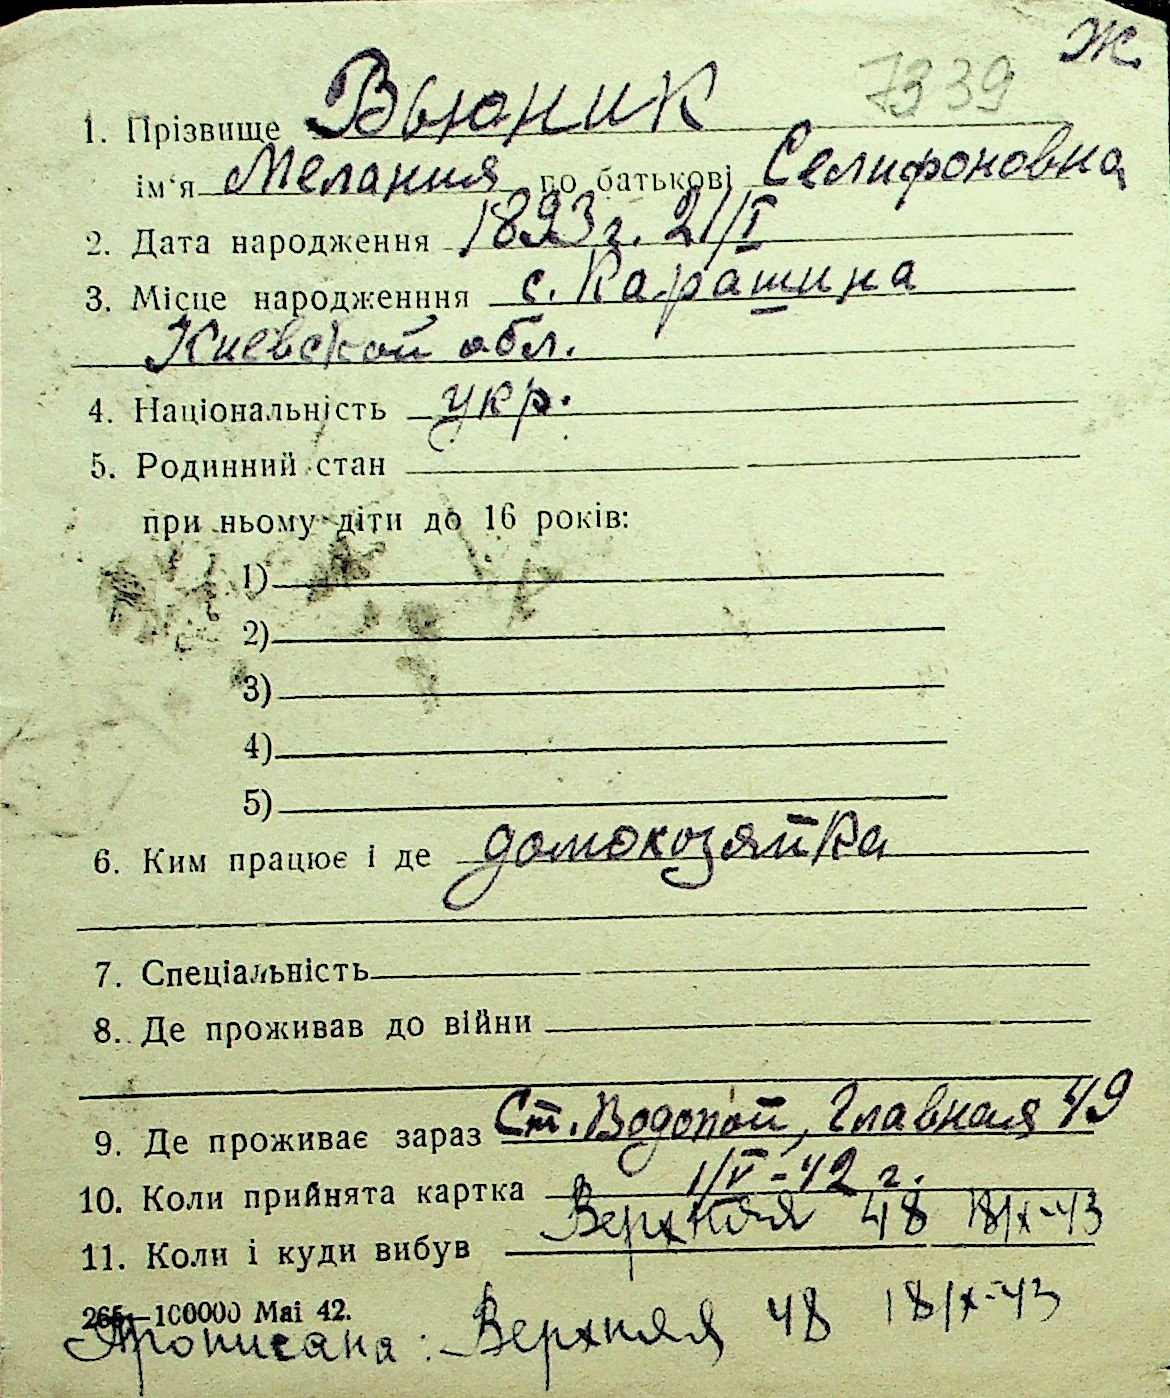 Ж
7339
1. Прізвище Вьюник
ім'я Мелания по батькові Селифоновна
2. Дата народження 1893 г. 21/I
3. Місце народженння с. Карашина
Киевской обл.
4. Національність укр.
5. Родинний стан
при ньому діти до 16 років:
1)
2)
3)
4)
5)
6. Ким працює і де домохозяйка
7. Спеціальність
8. Де проживав до війни
9. Де проживає зараз Ст. Водопой, Главная 49
10. Коли прийнята картка 1/V-42 г.
11. Коли і куди вибув Верхняя 48 18/X-43
265—100000 Маі 42.
Прописана: Верхняя 48 18/X-43